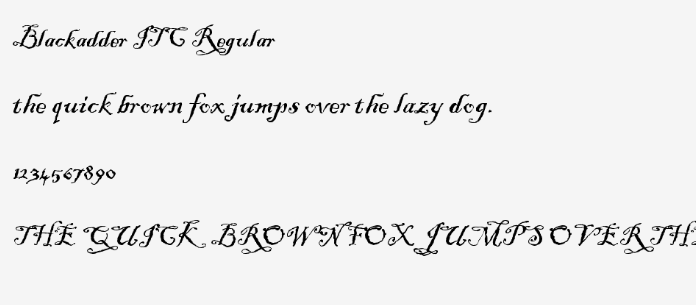 Blackadder ITC Regular
the quick brown fox jumps over the lazy dog.
1234567890
THE QUICK BROWN FOX JUMPS OVER TH